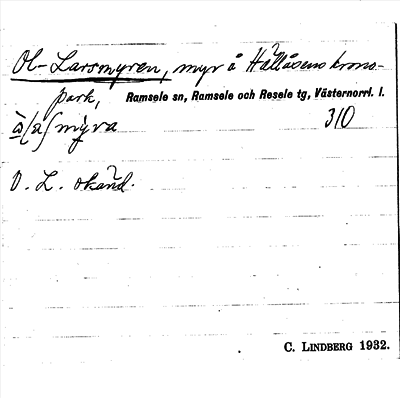 Ol-Larsmyren, myr å Hällåsens krono-
park, Ramsele sn, Ramsele och Resele tg, Västernorrl. l.
310
O. L. okänd.
C. LINDBERG 1932.